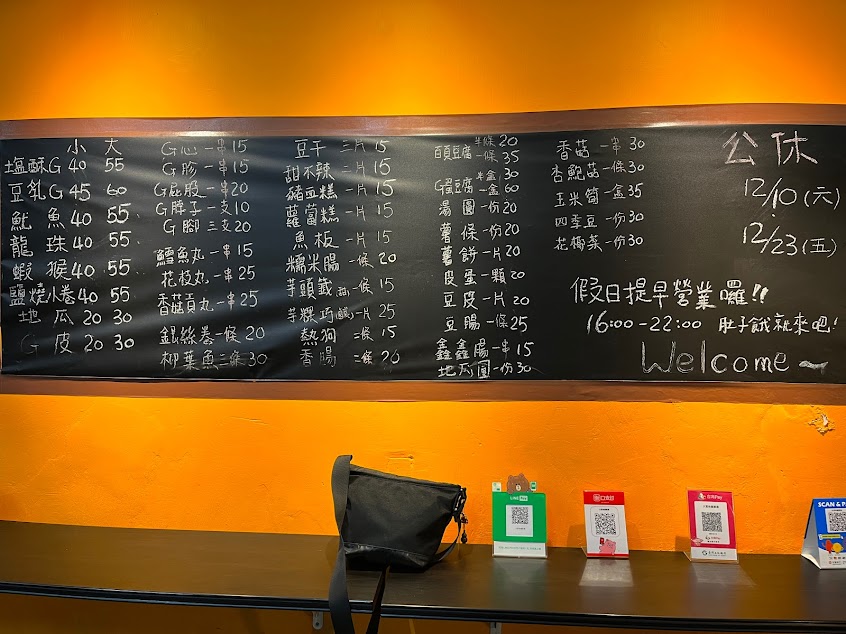 小 大
塩酥G 40 55
豆乳G 45 60
魷魚 40 55
龍珠 40 55
蝦猴 40 55
鹽燒小卷 40 55
地瓜 20 30
G皮 20 30
G心 一串 15
G胗 一串 15
G屁股 一串 20
G脖子 一支 10
G腳 三支 20
鱈魚丸 一串 15
花枝丸 一串 25
香菇貢丸 一串 25
銀絲卷 一條 20
柳葉魚 三條 30
豆干 三片 15
甜不辣 三片 15
豬血糕 一片 15
蘿蔔糕 一片 15
魚板 一片 15
糯米腸 一條 20
芋頭籤 15
芋粿巧 一片 25
熱狗 一條 15
香腸 一條 20
百頁豆腐 半條 20
一條 35
G蛋豆腐 半盒 30
一盒 60
湯圓 一份 20
薯條 一份 20
薯餅 一片 20
皮蛋 一顆 20
豆皮 一片 20
豆腸 一條 25
鑫鑫腸 一串 15
地瓜圓 一份 30
香菇 一串 30
杏鮑菇 一條 30
玉米筍 一盒 35
四季豆 一份 30
花椰菜 一份 30
公休
12/10 (六)
12/23 (五)
假日提早營業囉!!
16:00-22:00 肚子餓就來吧!
Welcome~
Pay
Pay
SCAN & P